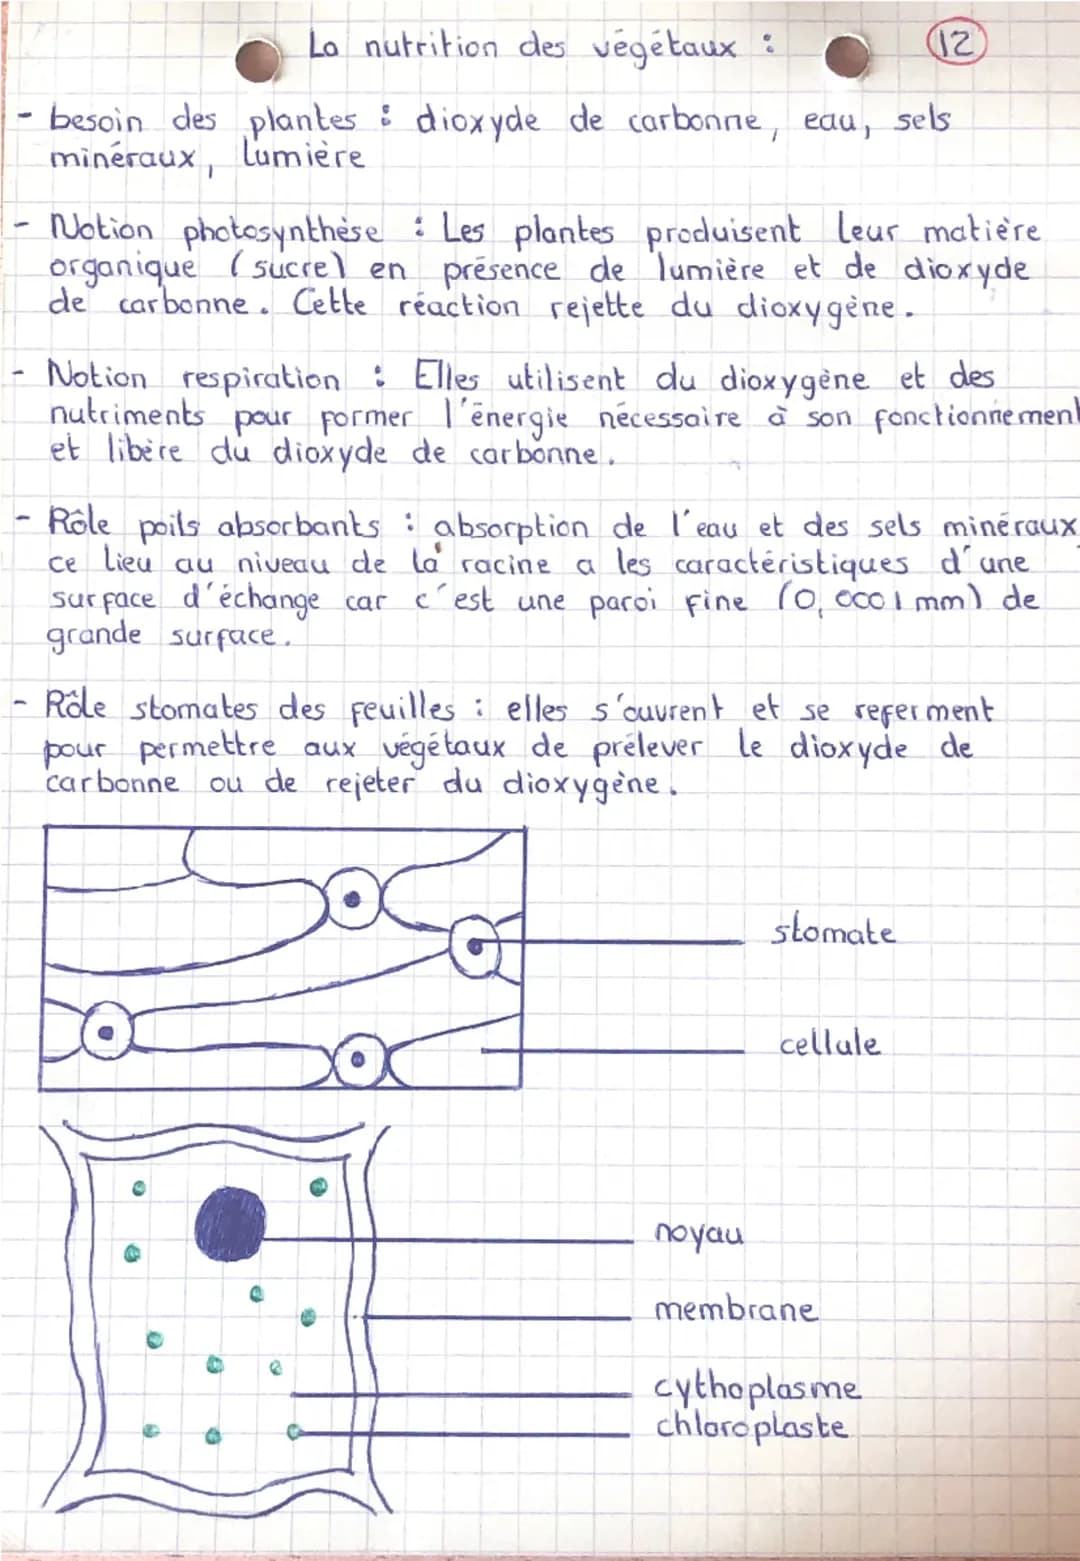 La nutrition des végétaux : 12
- besoin des plantes : dioxyde de carbonne, eau, sels
minéraux, lumière
- Notion photosynthèse : Les plantes produisent leur matière
organique (sucre) en présence de lumière et de dioxyde
de carbonne. Cette réaction rejette du dioxygène.
- Notion respiration : Elles utilisent du dioxygène et des
nutriments pour former l'énergie nécessaire à son fonctionnement
et libère du dioxyde de carbonne.
- Rôle poils absorbants : absorption de l'eau et des sels minéraux,
ce lieu au niveau de la racine a les caractéristiques d'une
surface d'échange car c'est une paroi fine (0,0001 mm) de
grande surface.
- Rôle stomates des feuilles : elles s'ouvrent et se referment
pour permettre aux végétaux de prélever le dioxyde de
carbonne ou de rejeter du dioxygène.
stomate
cellule
noyau
membrane
cythoplasme
chloroplaste